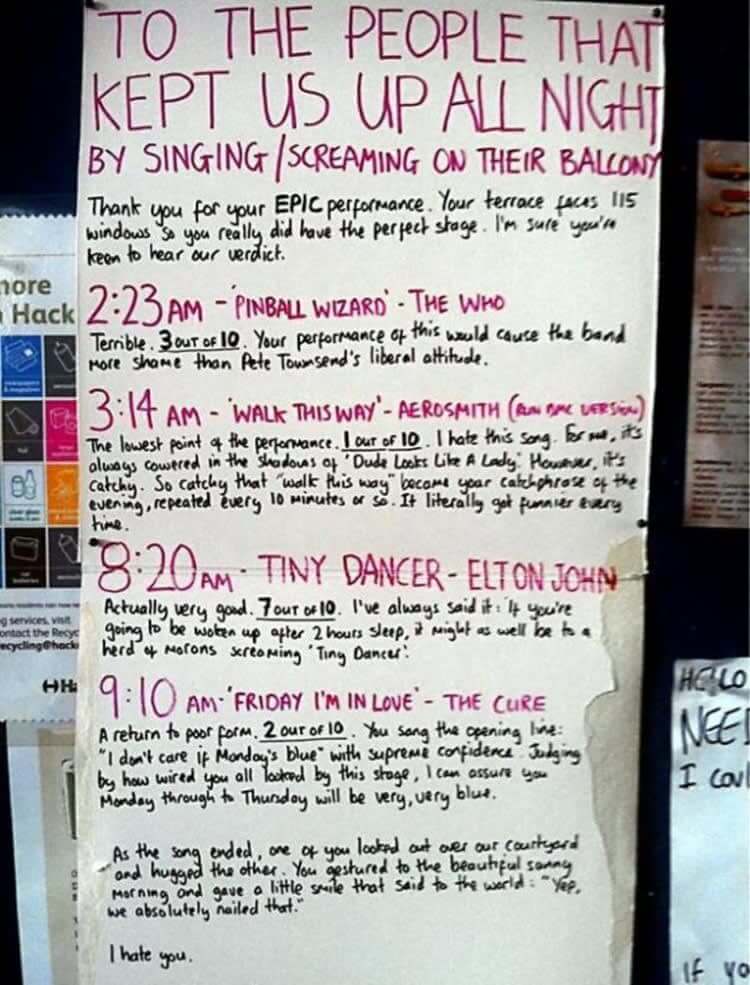 TO THE PEOPLE THAT
KEPT US UP ALL NIGHT
BY SINGING/SCREAMING ON THEIR BALCONY
Thank you for your EPIC performance. Your terrace faces 115
windows so you really did have the perfect stage. I'm sure you're
keen to hear our verdict.
2:23 AM - 'PINBALL WIZARD' - THE WHO
Terrible. 3 OUT OF 10. Your performance of this would cause the band
more shame than Pete Townsend's liberal attitude.
3:14 AM - 'WALK THIS WAY' - AEROSMITH (RUN DMC VERSION)
The lowest point of the performance. 1 OUT OF 10. I hate this song. For me, it's
always cowered in the shadows of 'Dude Looks Like A Lady'. However, it's
catchy. So catchy that "walk this way" became your catchphrase of the
evening, repeated every 10 minutes or so. It literally got funnier every
time.
8:20 AM - TINY DANCER - ELTON JOHN
Actually very good. 7 OUT OF 10. I've always said it: 'If you're
going to be woken up after 2 hours sleep, it might as well be to a
herd of morons screaming 'Tiny Dancer'.
9:10 AM - 'FRIDAY I'M IN LOVE' - THE CURE
A return to poor form. 2 OUT OF 10. You sang the opening line:
"I don't care if Monday's blue" with supreme confidence. Judging
by how wired you all looked by this stage, I can assure you
Monday through to Thursday will be very, very blue.
As the song ended, one of you looked out over our courtyard
and hugged the other. You gestured to the beautiful sunny
morning and gave a little smile that said to the world: "Yep,
we absolutely nailed that."
I hate you.
more
Hack
g services, visit
ontact the Recyc
ecycling@hack
HELLO
NEE
I coul
If yo